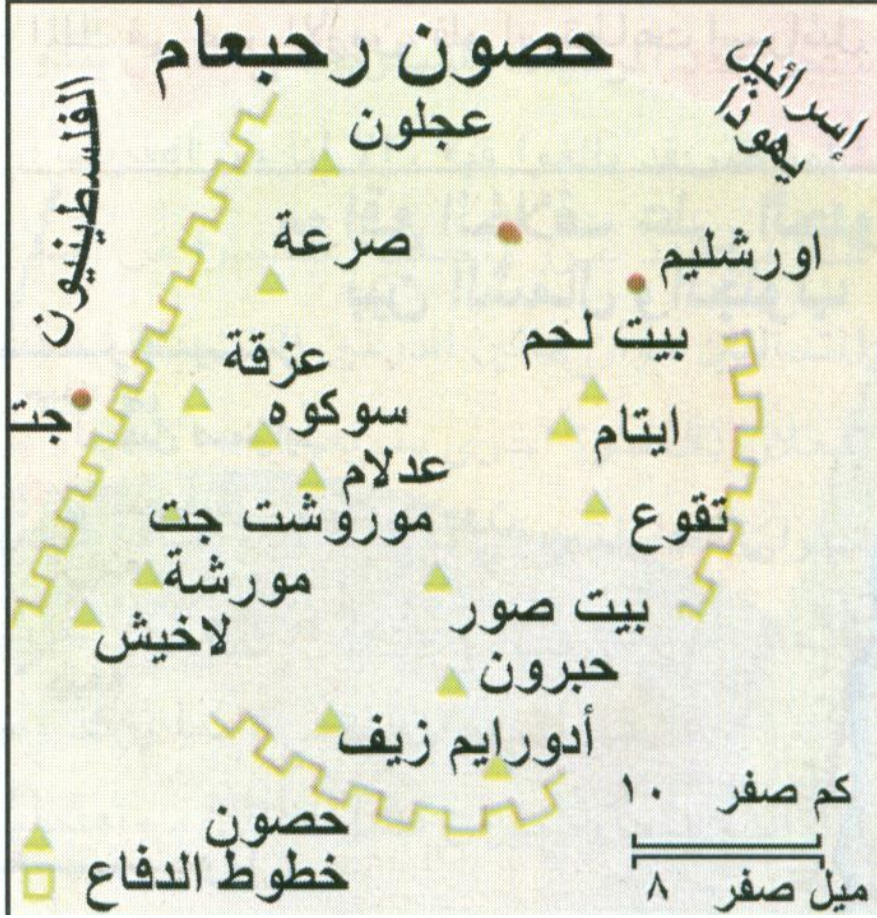 حصون رحبعام
إسرائيل
يهوذا
الفلسطينيون
عجلون
صرعة
اورشليم
بيت لحم
عزقة
جت
سوكوه
ايتام
عدلام
تقوع
موروشت جت
مورشة
بيت صور
لاخيش
حبرون
أدورايم زيف
حصون
خطوط الدفاع
كم صفر ١٠
ميل صفر ٨